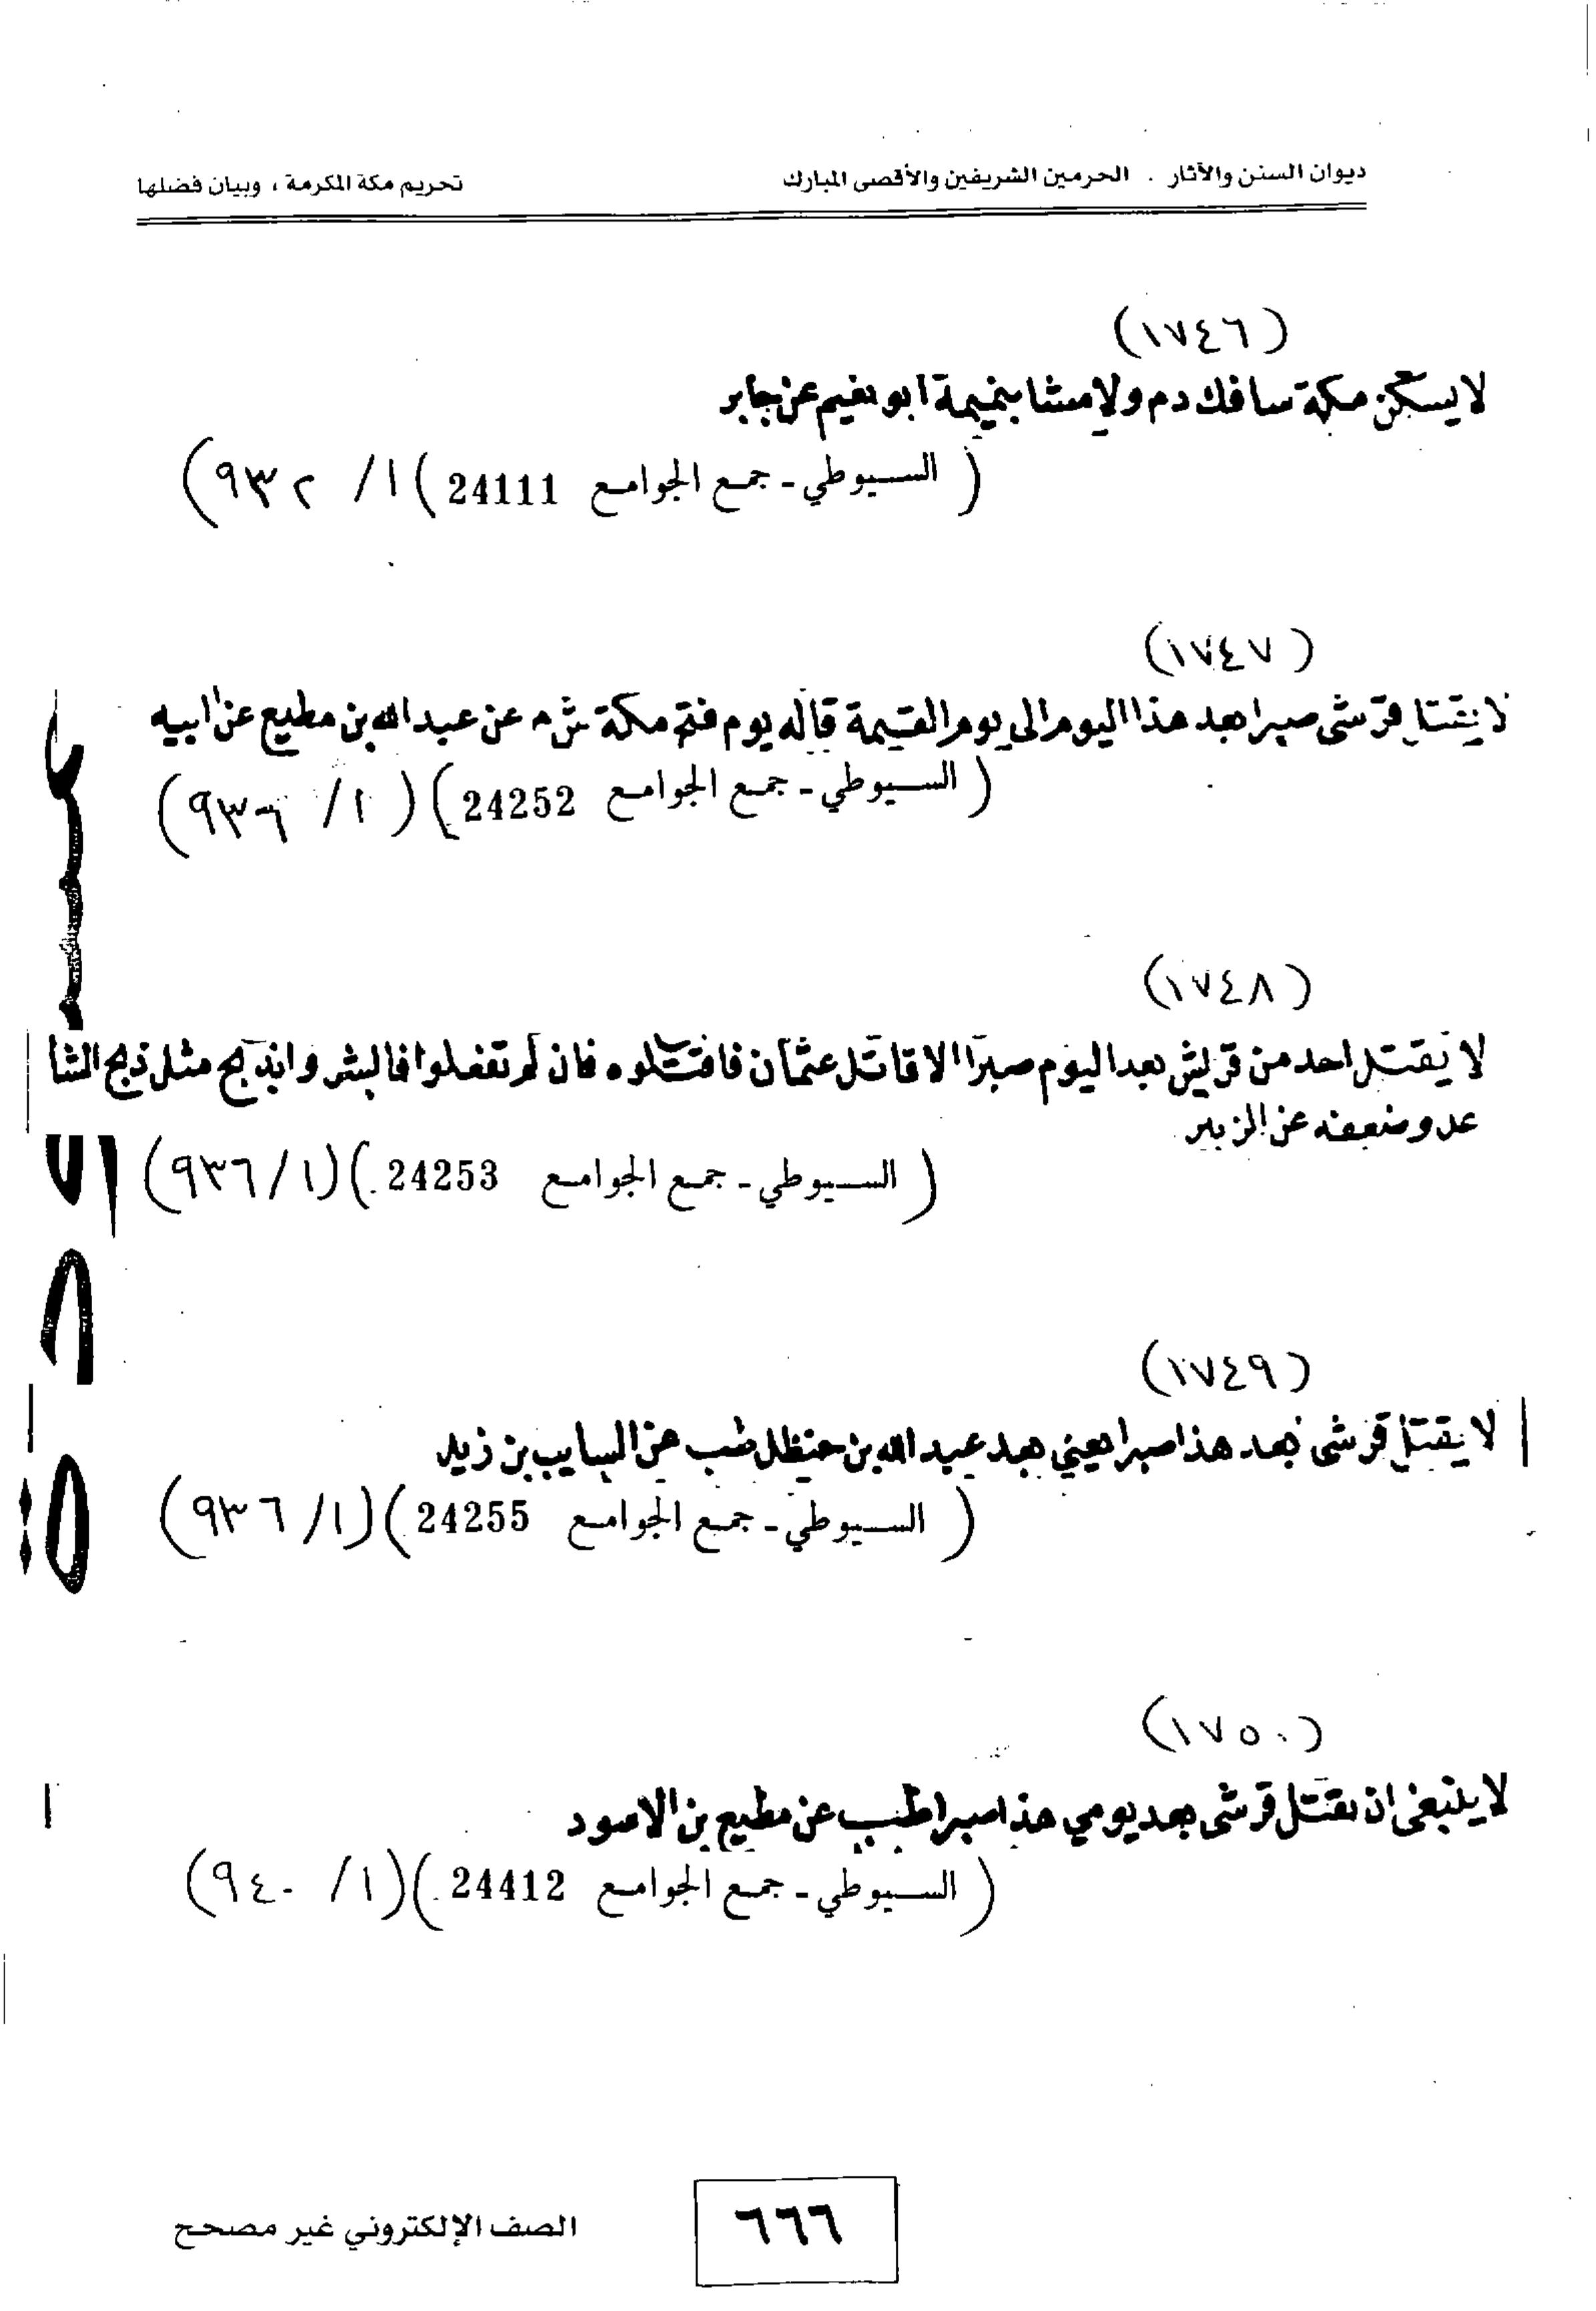 ديوان السنن والآثار . الحرمين الشريفين والأقصى المبارك
تحريم مكة المكرمة ، وبيان فضلها
(١٧٤٦)
لا يسكن مكة سافك دم ولا مشا بنميمة ابو نعيم عن جابر
(السيوطي - جمع الجوامع 24111) ١/ ٩٣٢)
(١٧٤٧)
لا يقتل قرشى صبرا بعد هذا اليوم الى يوم القيمة قاله يوم فتح مكة ش م عن عبد الله بن مطيع عن ابيه
(السيوطي - جمع الجوامع 24252) (١/ ٩٣٦)
(١٧٤٨)
لا يقتل احد من قريش بعد اليوم صبرا الا قاتل عثمان فاقتلوه فان لم تفعلوا فابشروا بذبح مثل ذبح الشا
عد وضعفه عن الزبير
(السيوطي - جمع الجوامع 24253) (١/ ٩٣٦)
(١٧٤٩)
لا يقتل قرشى بعد هذا صبرا يعني بعد عبد الله بن حنظل طب عن السايب بن زيد
(السيوطي - جمع الجوامع 24255) (١/ ٩٣٦)
(١٧٥٠)
لا ينبغى ان يقتل قرشى بعد يومي هذا صبرا طب عن مطيع بن الاسود
(السيوطي - جمع الجوامع 24412) (١/ ٩٤٠)
٦٦٦
الصف الإلكتروني غير مصحح